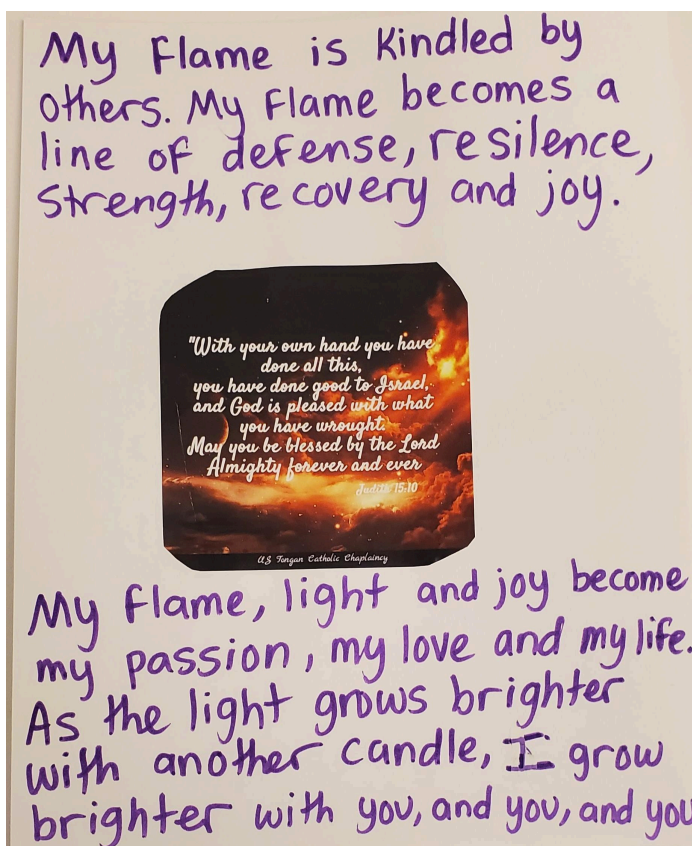 My Flame is Kindled by
others. My Flame becomes a
line of defense, resilence,
Strength, recovery and joy.
"With your own hand you have
done all this,
you have done good to Israel,
and God is pleased with what
you have wrought.
May you be blessed by the Lord
Almighty forever and ever
Judith 15:10
US Tongan Catholic Chaplaincy
My flame, light and joy become
my passion, my love and my life.
As the light grows brighter
with another candle, I grow
brighter with you, and you, and you